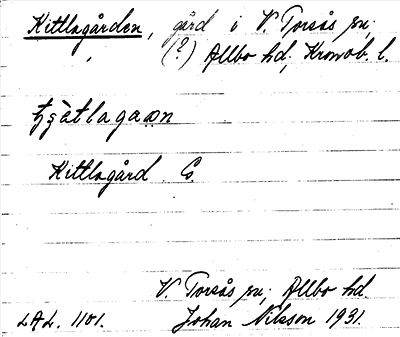 Kittlagården, gård i V. Torsås sn;
(?) Allbo hd; Kronob. l.
tʃètlagaɷn
Kittlagård E.
V. Torsås sn; Allbo hd.
LAL. 1101. Johan Nilsson 1931.